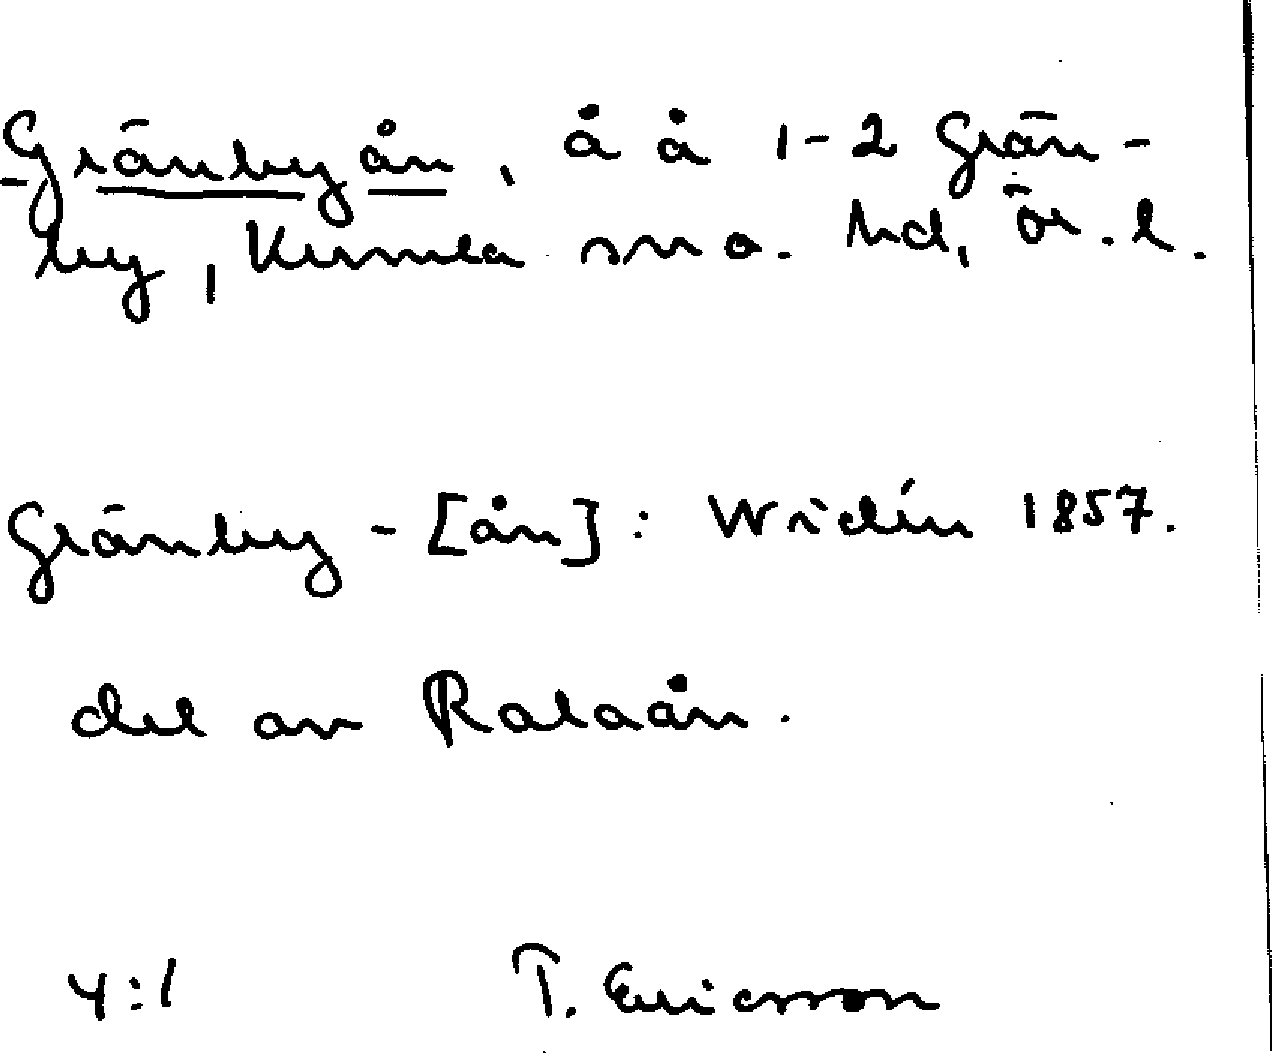 Gränbyån, å å 1-2 Grän-
by, Kumla sn o. hd, Ör. l.
Gränby-[ån]: Widén 1857.
del av Ralaån.
4:1 T. Ericsson